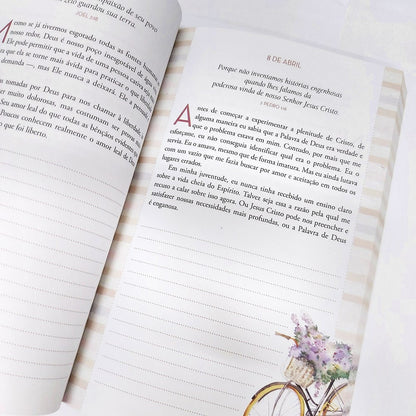 paixão de seu povo
zelo guardou sua terra.
JOEL 2:18
como se já tivermos esgotado todas as fontes
nosso redor. Deus é nosso poço inesgotável de
Ele pode permitir que a vida de uma pessoa cai
para que ela se torne mais ávida para praticar o que
demanda —, mas Ele nunca a deixará. Ele a
tomadas por Deus para nos chamar à liberdade
ser muito dolorosas, mas costumam ser
Seu amor leal do que todas as bênçãos
Poucos conhecem realmente o amor leal de
que o foi liberto.
8 DE ABRIL
Porque não inventamos histórias engenhosas
quando lhes falamos da
poderosa vinda de nosso Senhor Jesus Cristo.
2 PEDRO 1:16
Antes de começar a experimentar a plenitude de Cristo, de
alguma maneira eu sabia que a Palavra de Deus era verdade e
que o problema estava em mim. Contudo, por mais que me
esforçasse, eu não conseguia identificar qual era o problema. Eu
servia. Eu o amava, mesmo que de forma imatura. Mas eu ainda lutava
com um vazio que me fazia buscar por amor e aceitação em todos os
lugares errados.
Em minha juventude, eu nunca tinha recebido um ensino claro
sobre a vida cheia do Espírito. Talvez seja essa a razão pela qual me
recuso a calar sobre isso agora. Ou Jesus Cristo pode nos preencher e
satisfazer nossas necessidades mais profundas, ou a Palavra de Deus
é enganosa.